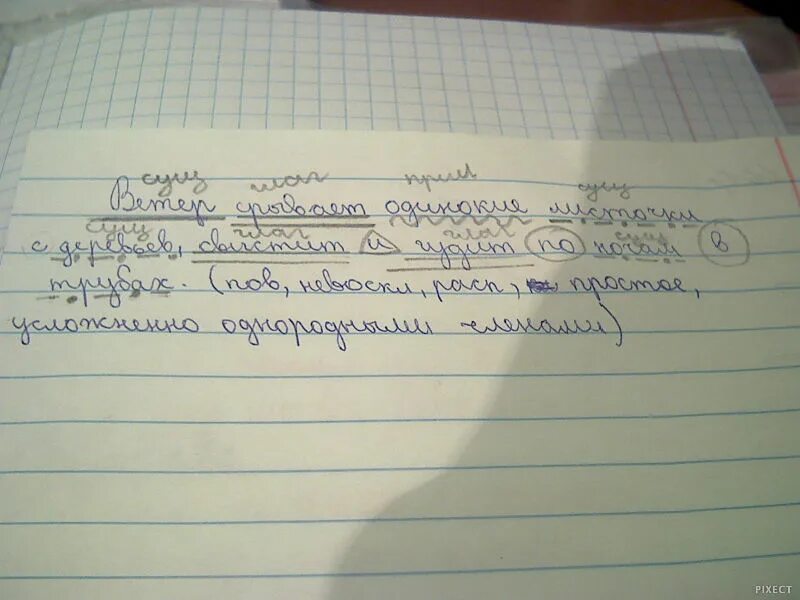 сущ глаг прил сущ
Ветер срывает одинокие листочки
сущ глаг глаг сущ
с деревьев, свистит и гудит по ночам в
трубах. (пов, невоскл, расп, простое,
усложненно однородными членами)
PIXECT